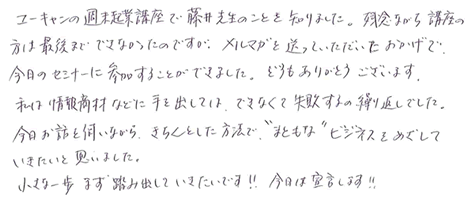 ユーキャンの週末起業講座で藤井先生のことを知りました。残念ながら講座の
方は最後までできなかったのですが、メルマガを送っていただいたおかげで、
今日のセミナーに参加することができました。どうもありがとうございます。
私は情報商材などに手を出しては、できなくて失敗するの繰り返しでした。
今日お話を伺いながら、きちんとした方法で、"まともな"ビジネスをめざして
いきたいと思いました。
小さな一歩 まず踏み出していきたいです!! 今日は宣言します!!